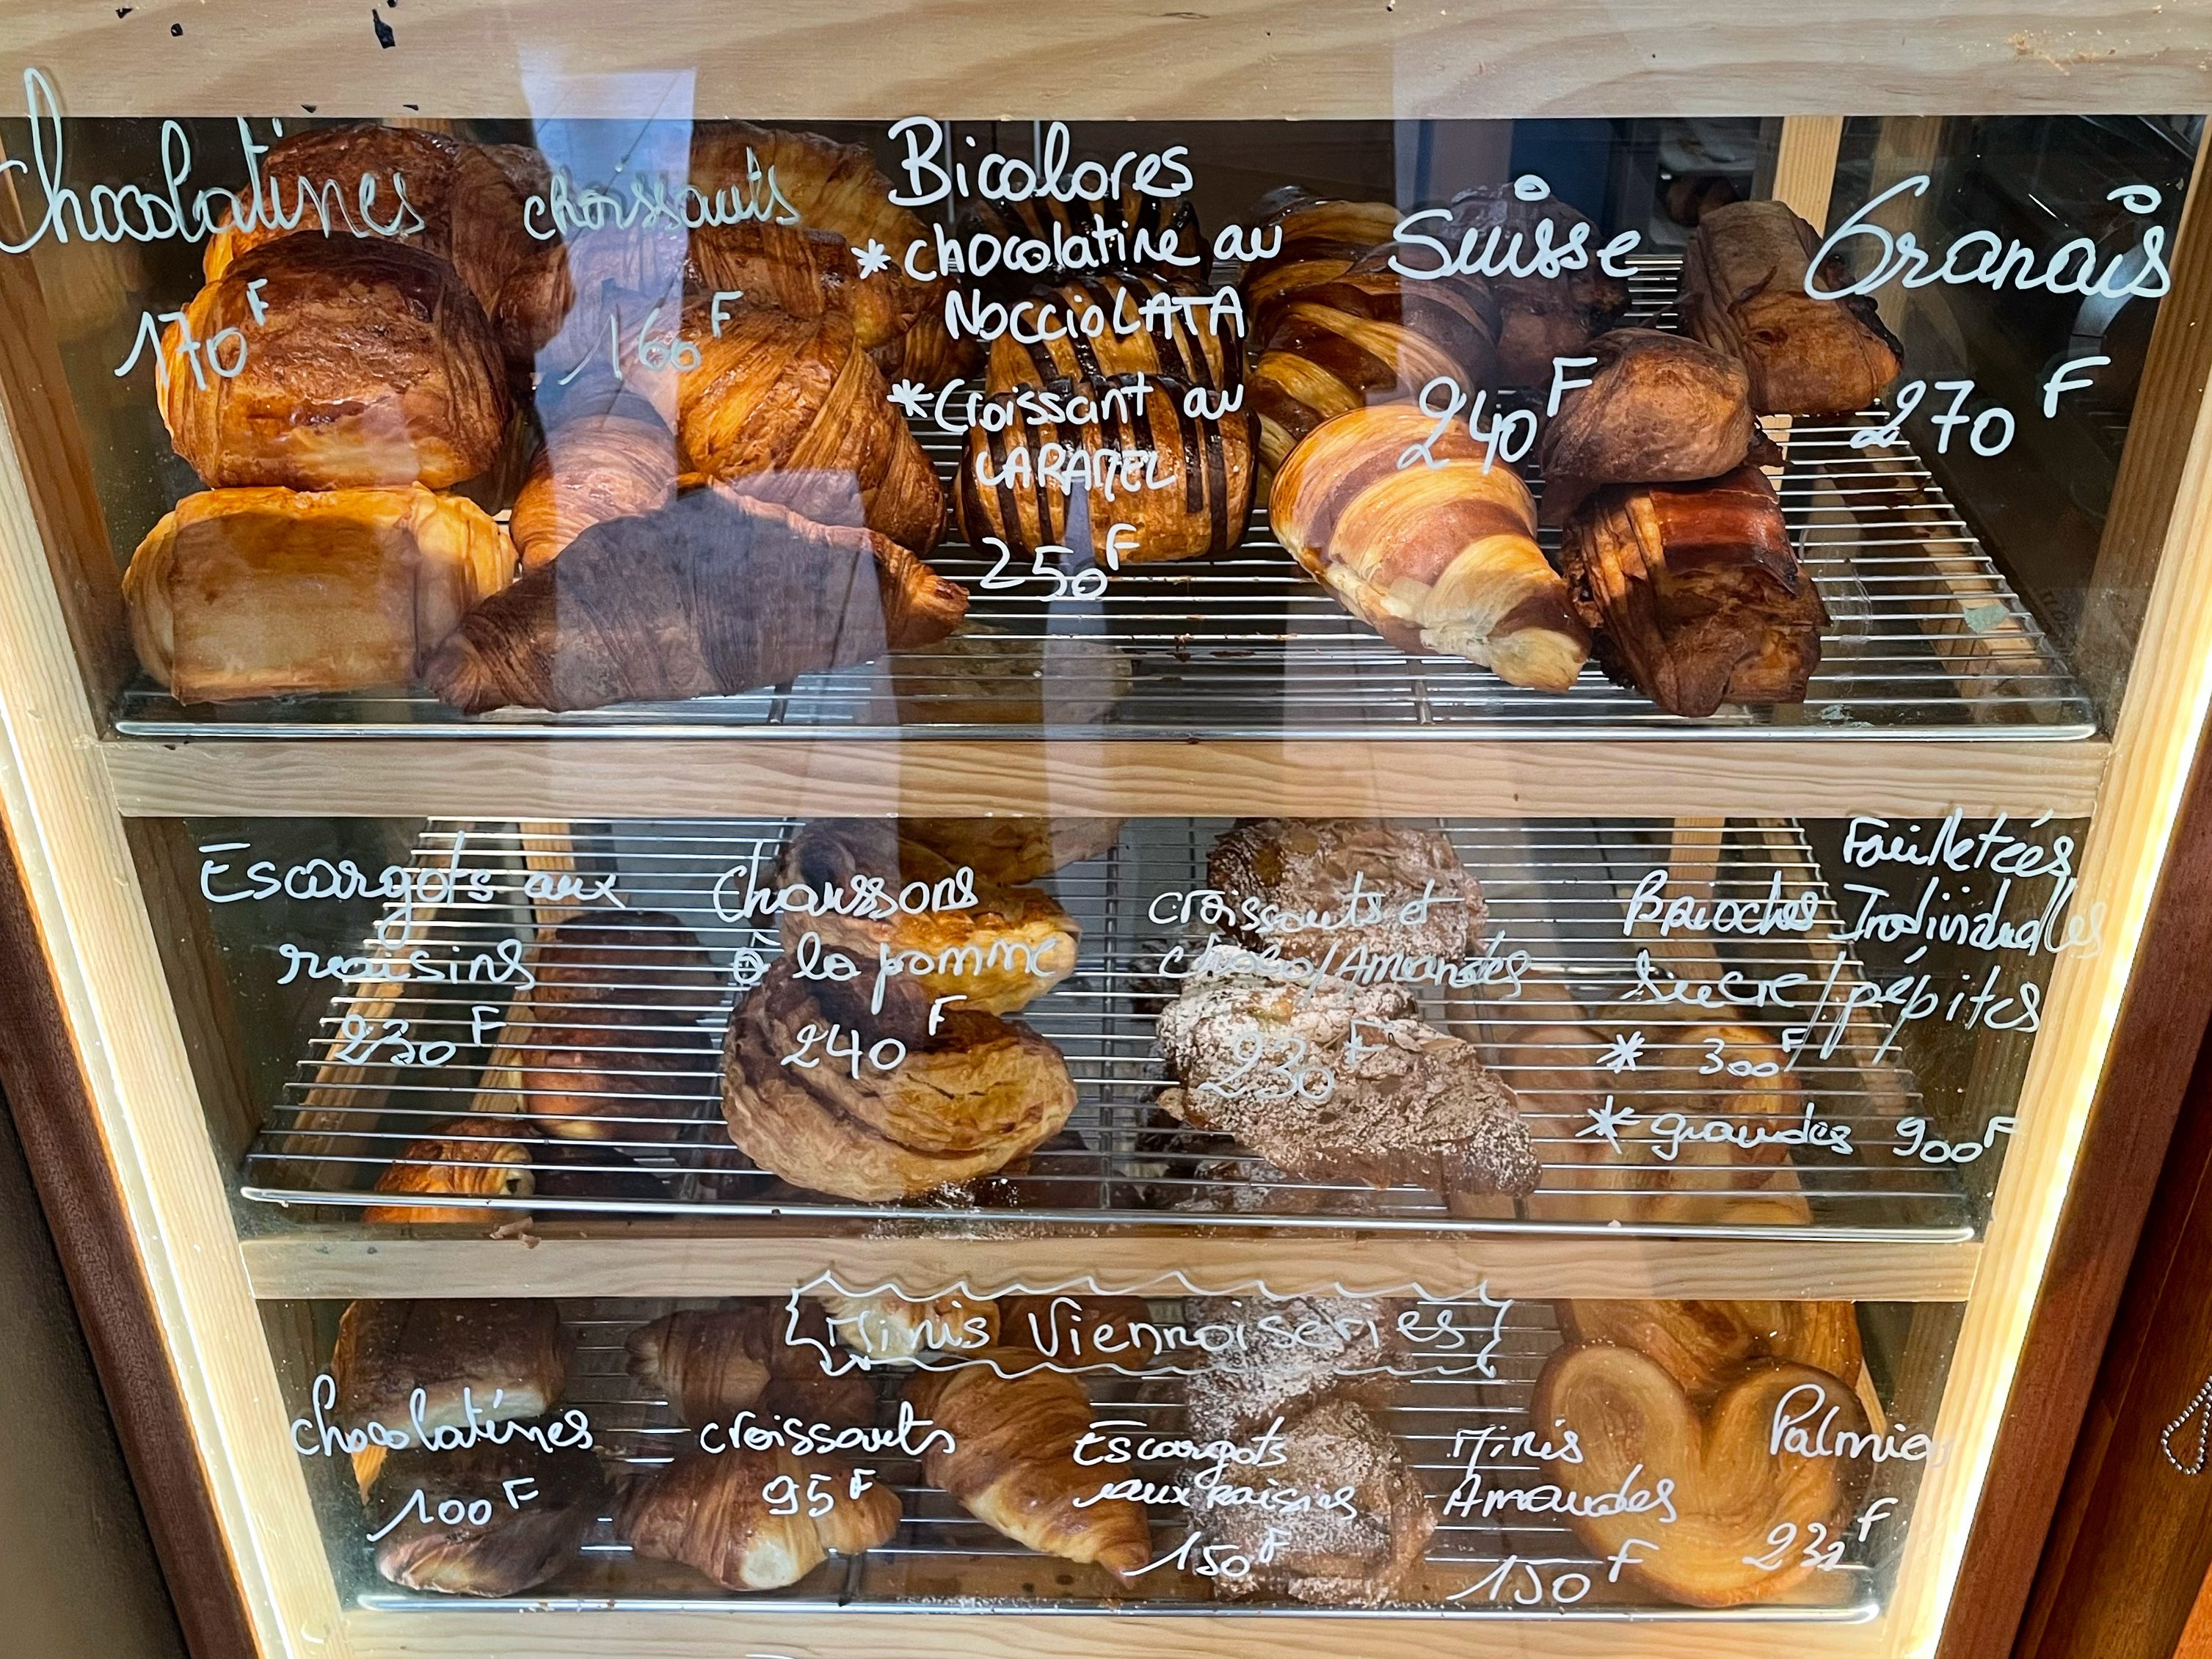 Chocolatines
170F
croissants
160F
Bicolores
* chocolatine au
NoccioLATA
* Croissant au
CARAMEL
250F
Suisse
240F
Granais
270F
Escargots aux
raisins
230F
Chaussons
à la pomme
240F
croissants et
choco/Amandes
230F
Feuilletées
Brioches Individuelles
Sucre/pépites
* 300F
* grandes 900F
Minis Viennoiseries
chocolatines
100F
croissants
95F
Escargots
aux raisins
150F
Minis
Amandes
150F
Palmier